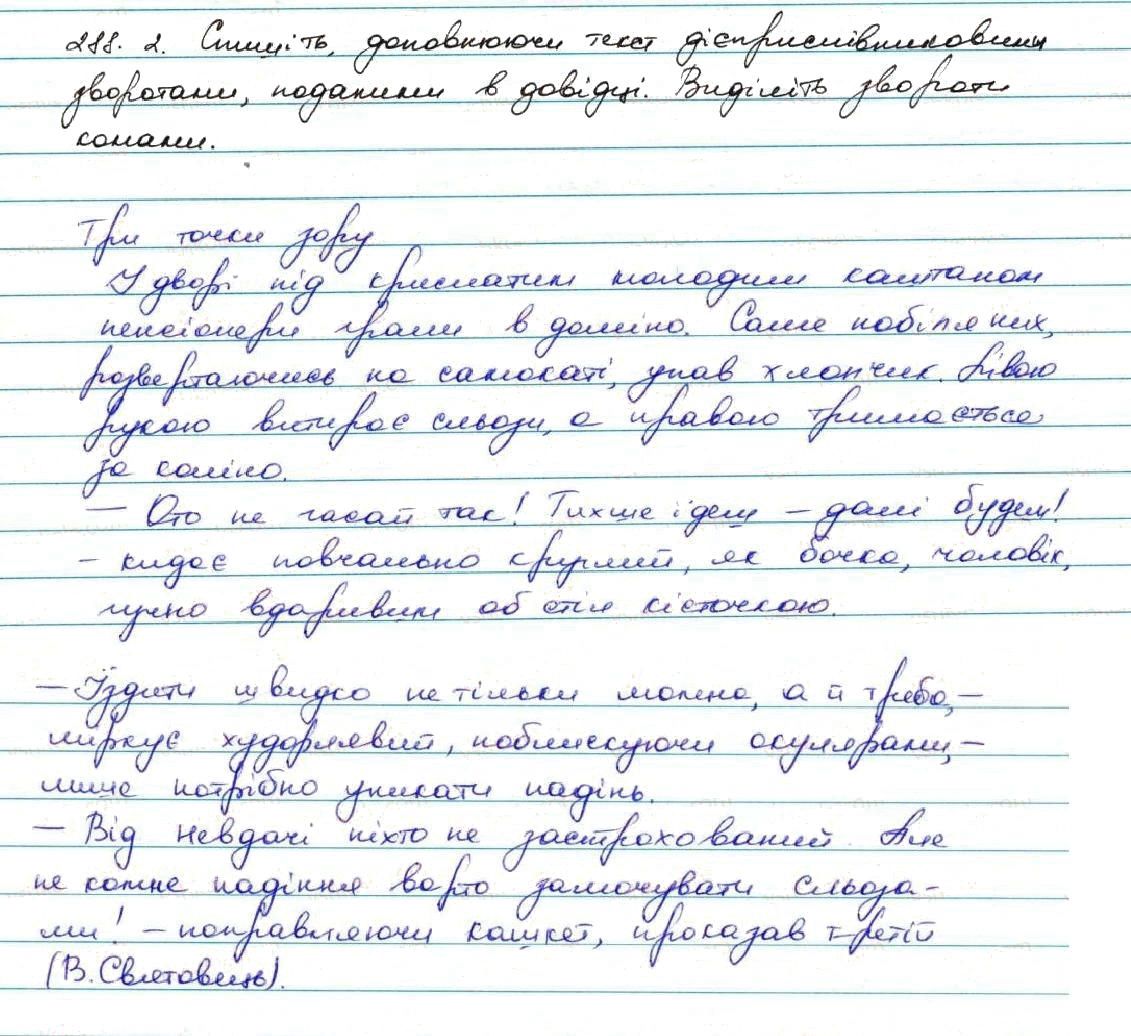 288. 2. Спишіть, доповнюючи текст дієприслівниковими
зворотами, поданими в довідці. Виділіть звороти
комами.
Три точки зору
У дворі під крислатим молодим каштаном
пенсіонери грали в доміно. Саме побіля них,
розвертаючись на самокаті, упав хлопчик. Лівою
рукою витирає сльози, а правою тримається
за коліно.
— Ото не гасай так! Тихше їдеш – далі будеш!
– кидає повчально круглий, як бочка, чоловік,
гучно вдаривши об стіл кісточкою.
— Їздити швидко не тільки можна, а й треба, –
міркує худорлявий, поблискуючи окулярами, –
лише потрібно уникати падінь.
— Від невдачі ніхто не застрахований. Але
не кожне падіння варто замочувати сльоза-
ми! – поправляючи кашкет, проказав третій
(В. Святовець).